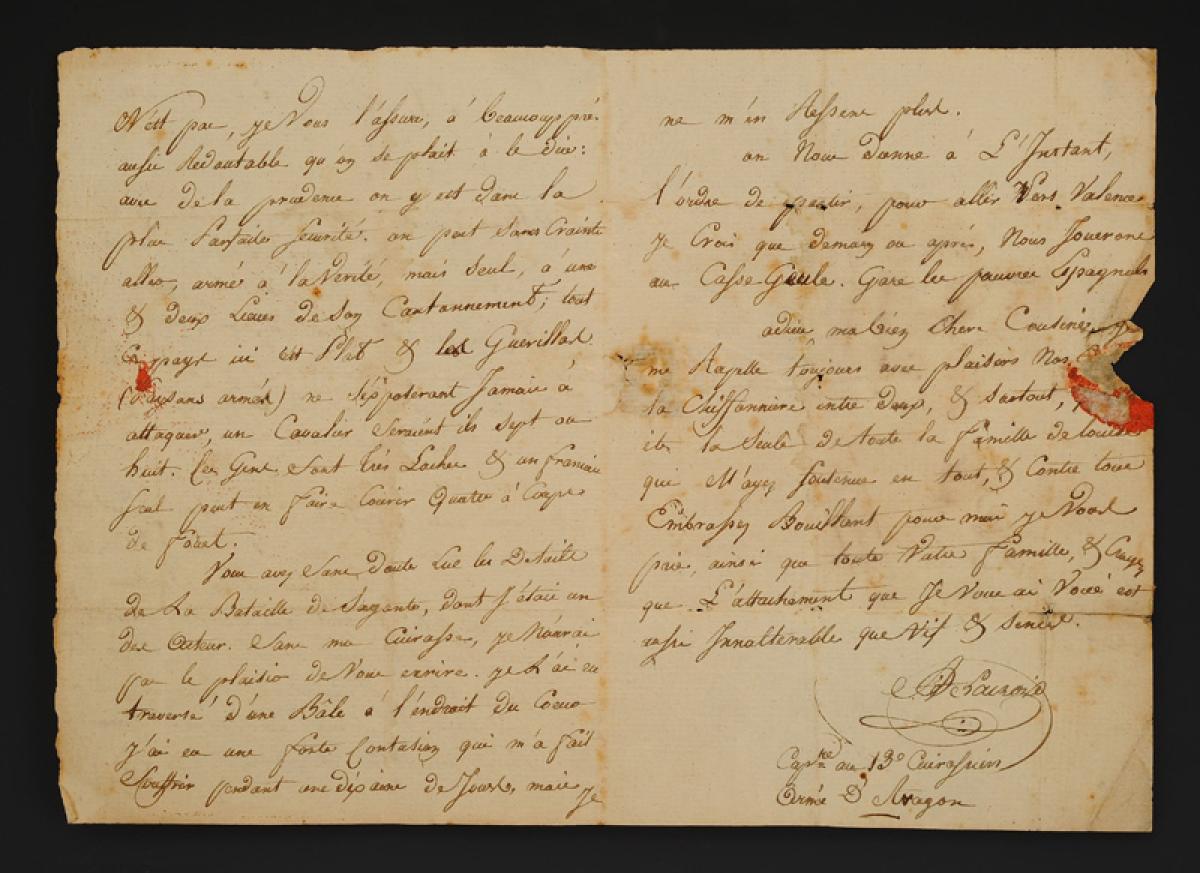 N'est pas, je Vous l'assure, à beaucoup près
aussi Redoutable qu'on se plait à le dire:
avec de la prudence on y est dans la
plus Parfaite Securité. on peut Sans Crainte
aller, armé à la Verité, mais seul, à une
& deux Lieues de Son Cantonnement; tout
le pays ici est Plat & les Guerillas
(paysans armés) ne s'exposerant Jamais à
attaquer, un Cavalier Seraient ils sept ou
huit. Ces Gens sont très Laches & un francais
seul peut en faire Courir Quatre à Coups
de fouet.
Vous avez Sans doute Lue les Details
de La Bataille de Sagonte, dont J'étais un
des Acteur. Sans ma Cuirasse, je N'aurai
pas le plaisir de Vous ecrire. je L'ai eu
traversé d'une Bâle à l'endroit du Coeur
j'ai eu une forte Contusion qui m'a fait
Souffrir pendant une dixaine de Jours, mais je
ne m'en Ressens plus.
on Nous donne à L'Instant,
l'ordre de partir, pour aller Vers Valence
je Crois que demain ou après, Nous Jouerons
au Casse Geule. Gare les pauvres Espagnols
adieu ma bien Chere Cousine, je
me Rapelle toujours avec plaisirs Nos
la Chiffonniere entre deux, & surtout,
êtes la Seule de toute la famille de
qui M'ayez Soutenue en tout, & Contre tous
Embrassez Bouillant pour moi je Vous
prie, ainsi que toute Votre famille, & Croyez
que L'attachement que Je Vous ai Voué est
aussi Innalterable que Vif & sincer.
Capne au 13e Cuirassiers
Armée D'Aragon